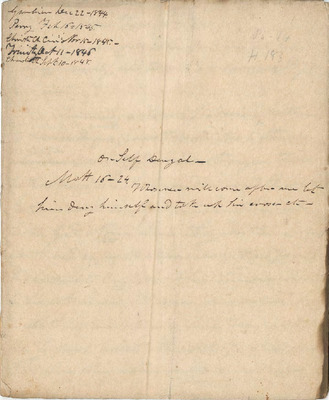 Gambier Dec 22-1844
Perry Feb 16-1845
Christ Ch Cin Nov 15-1845-
Trinity Oct 11-1846
Sept 10-1848
On Self Denyal-
Matt 16-24
Whoever will come after me let
him deny himself and take up his cross etc-